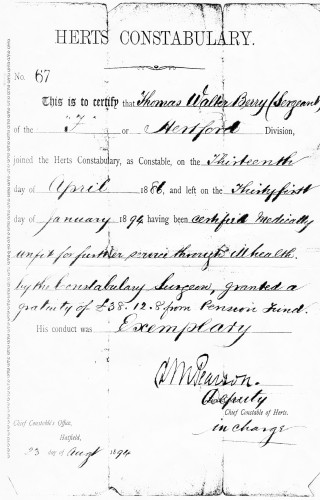 HERTS CONSTABULARY.
No. 67
This is to certify that Thomas Walter Berry (Sergeant)
of the "F" or Hertford Division,
joined the Herts Constabulary, as Constable, on the Thirteenth
day of April 1886, and left on the Thirtyfirst
day of January 1894 having been certified Medically
unfit for further service through ill health.
by the Constabulary Surgeon, granted a
gratuity of £38.12.8 from Pension Fund.
His conduct was Exemplary
Pearson.
Deputy
Chief Constable of Herts.
in charge
Chief Constable's Office,
Hatfield,
23 day of Augt 1894